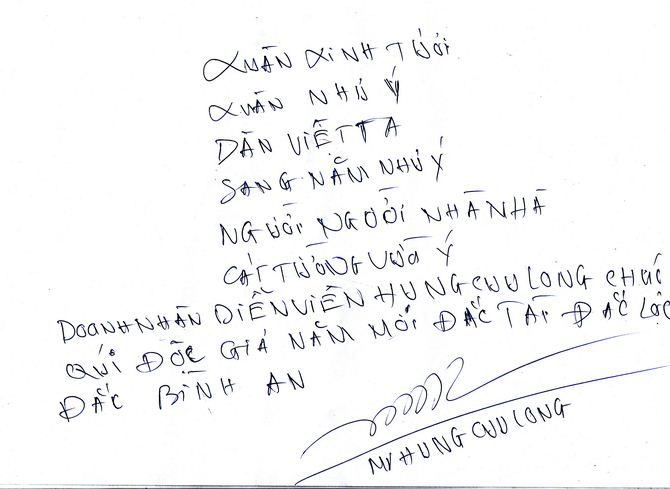 XUÂN XINH TƯƠI
XUÂN NHƯ Ý
DÂN VIỆT TA
SANG NĂM NHƯ Ý
NGƯỜI NGƯỜI NHÀ NHÀ
CÁT TƯỜNG VỪA Ý
DOANH NHÂN DIỄN VIÊN HÙNG CỬU LONG CHÚC
QUÍ ĐỘC GIẢ NĂM MỚI ĐẮC TÀI ĐẮC LỘC
ĐẮC BÌNH AN
MR HUNG CUU LONG